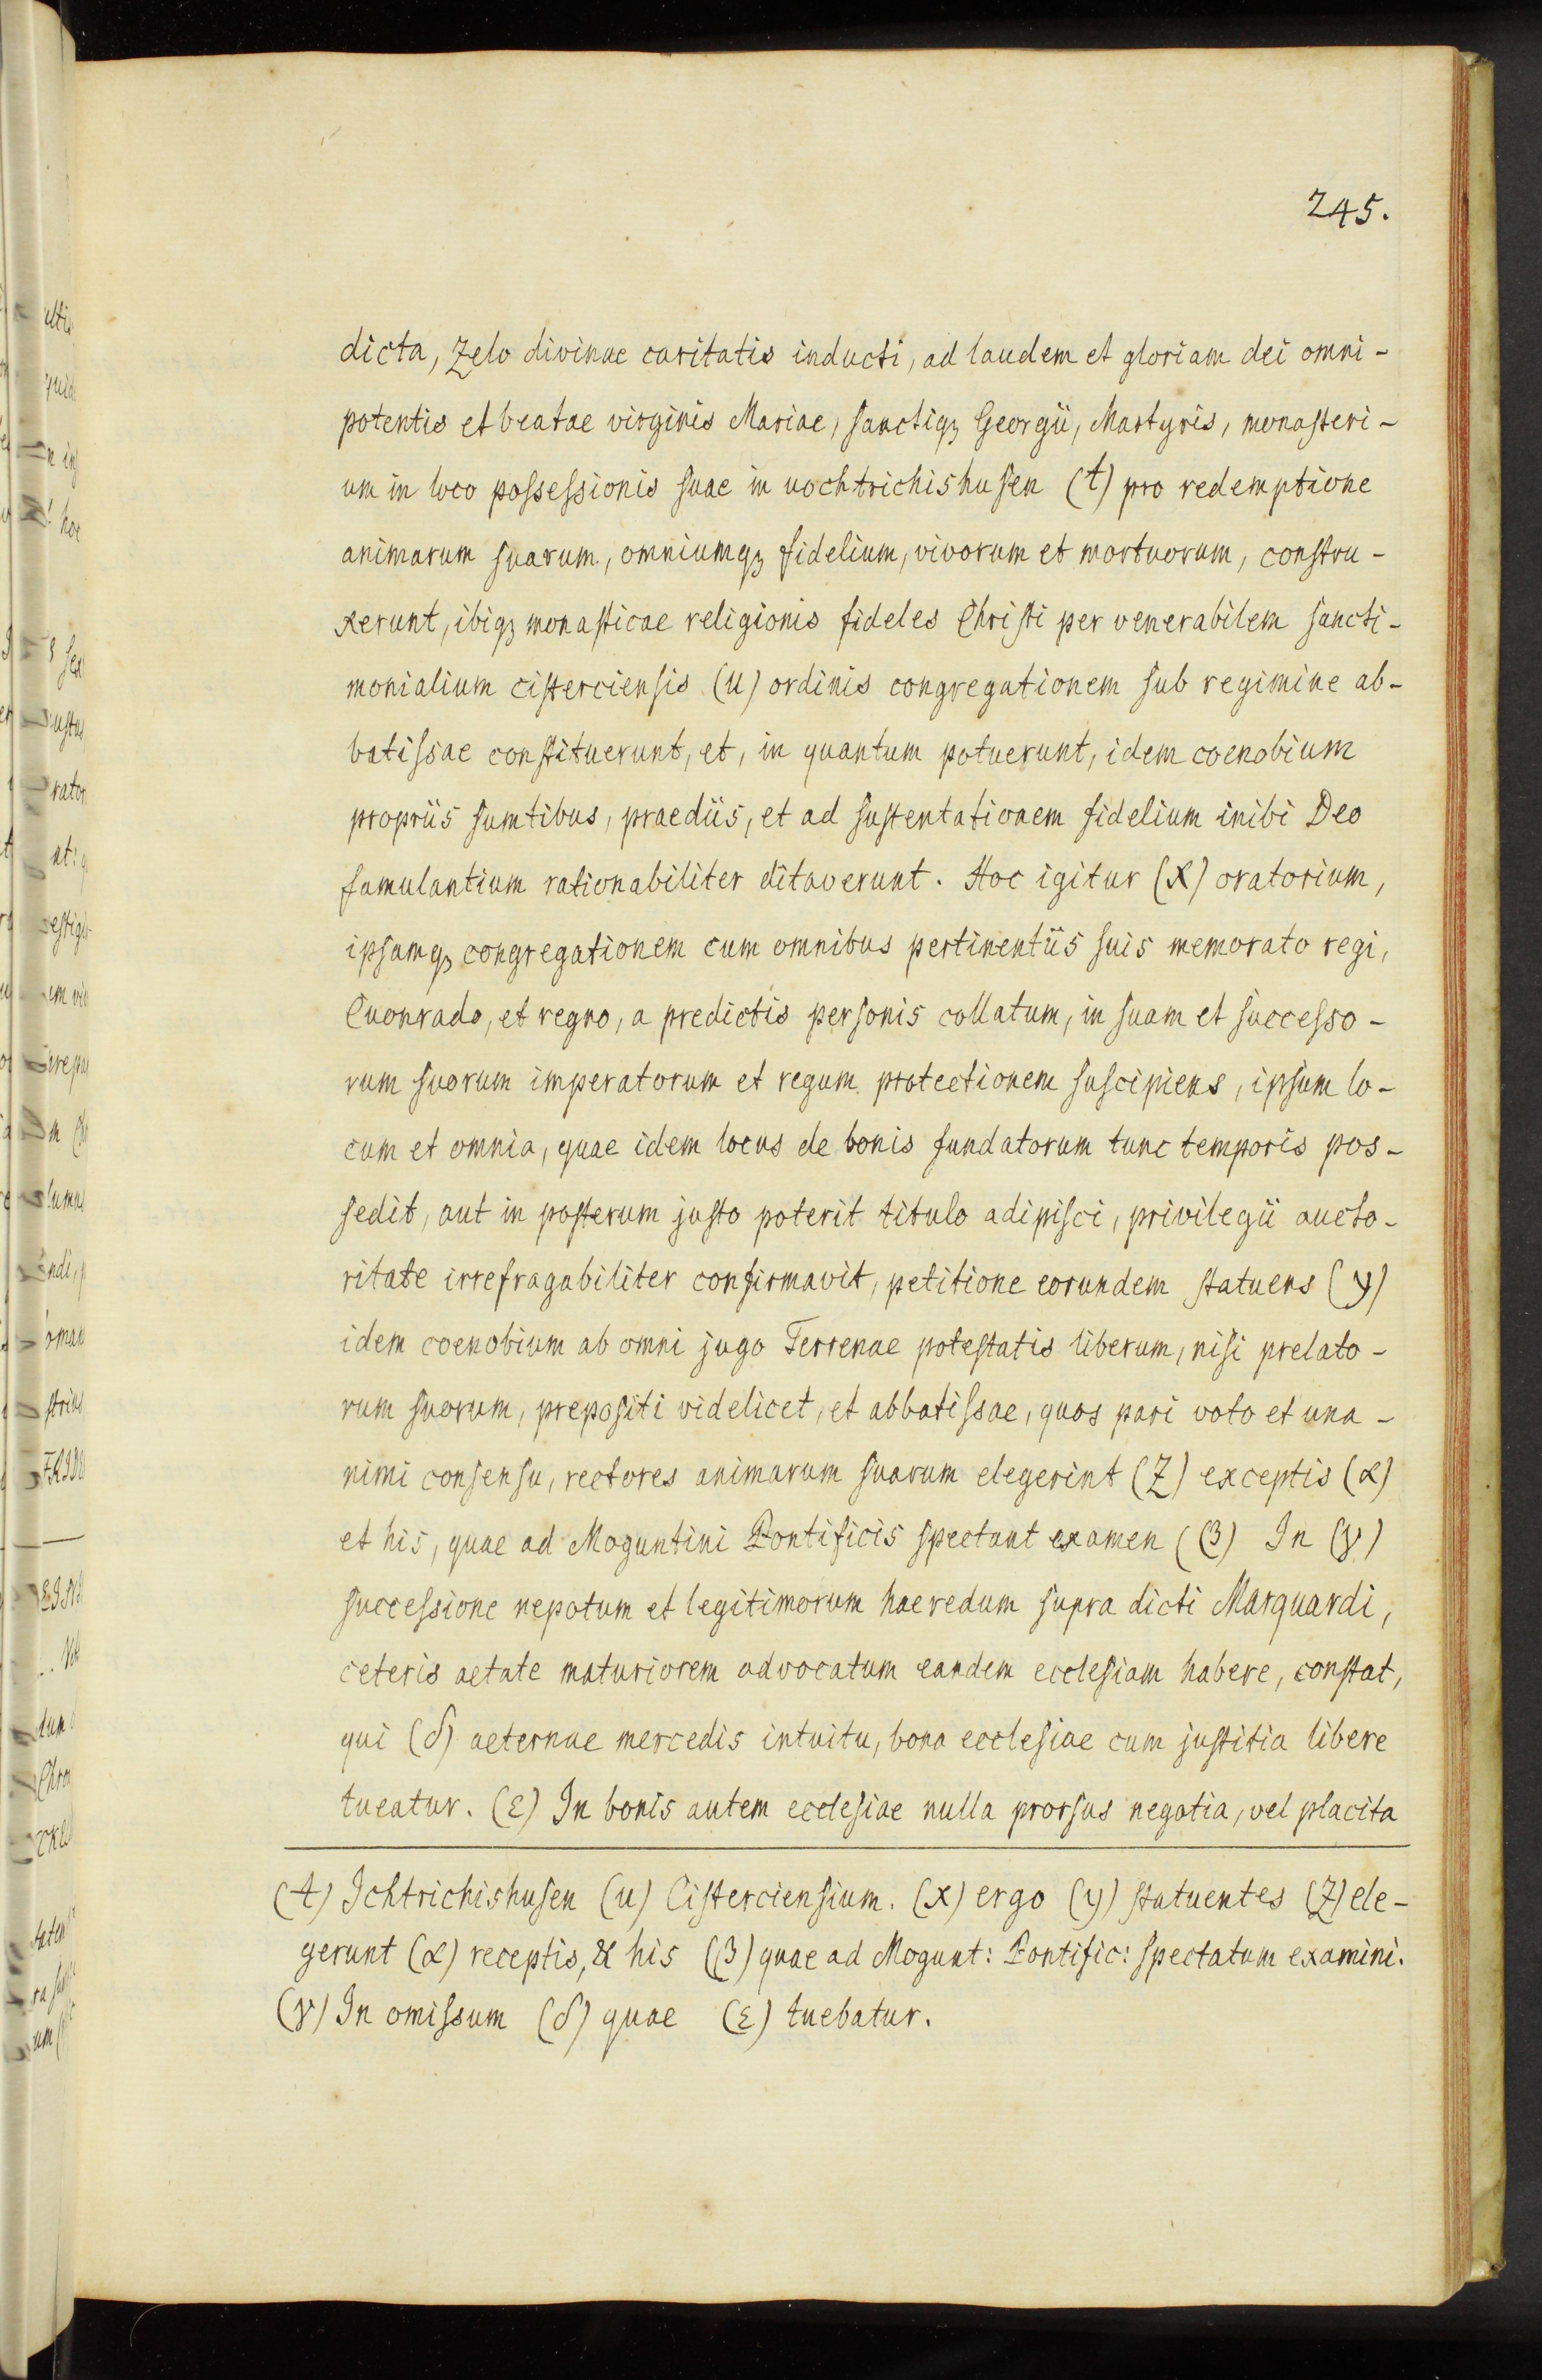 245.
dicta, Zelo divinae caritatis inducti, ad laudem et gloriam dei omni-
potentis et beatae virginis Mariae, sanctiqꝫ Georgii, Martyris, monasteri-
um in loco possessionis suae in uochtrichishusen (t) pro redemptione
animarum suarum, omniumqꝫ fidelium, vivorum et mortuorum, constru-
xerunt, ibiqꝫ monasticae religionis fideles Christi per venerabilem sancti-
monialium cisterciensis (u) ordinis congregationem sub regimine ab-
batissae constituerunt, et, in quantum potuerunt, idem coenobium
propriis sumtibus, praediis, et ad sustentationem fidelium inibi Deo
famulantium rationabiliter ditaverunt. Hoc igitur (x) oratorium,
ipsamqꝫ congregationem cum omnibus pertinentiis suis memorato regi,
Cuonrado, et regno, a predictis personis collatum, in suam et successo-
rum suorum imperatorum et regum protectionem suscipiens, ipsum lo-
cum et omnia, quae idem locus de bonis fundatorum tunc temporis pos-
sedit, aut in posterum justo poterit titulo adipisci, privilegii aucto-
ritate irrefragabiliter confirmavit, petitione eorundem statuens (y)
idem coenobium ab omni jugo Terrenae potestatis liberum, nisi prelato-
rum suorum, prepositi videlicet, et abbatissae, quos pari voto et una-
nimi consensu, rectores animarum suarum elegerint (Z) exceptis (α)
et his, quae ad Moguntini Pontificis spectant examen (β) In (γ)
successione nepotum et legitimorum haeredum supra dicti Marquardi,
ceteris aetate maturiorem advocatum eandem ecclesiam habere, constat,
qui (δ) aeternae mercedis intuitu, bona ecclesiae cum justitia libere
tueatur. (ε) In bonis autem ecclesiae nulla prorsus negotia, vel placita
(t) Ichtrichishusen (u) Cisterciensium. (x) ergo (y) statuentes (Z) ele-
gerunt (α) receptis, & his (β) quae ad Mogunt: Pontific: spectatum examini.
(γ) In omissum (δ) quae (ε) tuebatur.